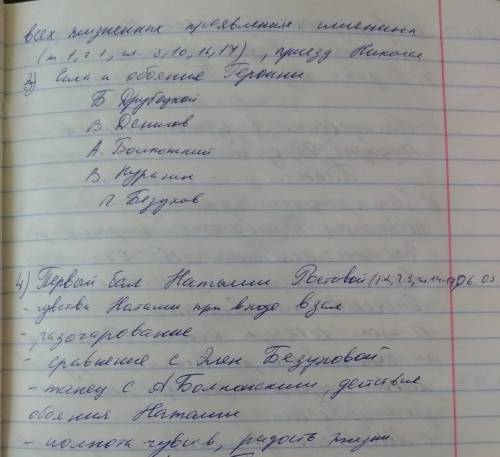 всех жизненных проявлениях именины
(т 1, ч 1, гл. 9,10,16,17), приезд Николая
3) Сила и обояние Героини
Б Друбецкой
В. Денисов
А. Болконский
В. Курагин
П. Безухов
4) Первый бал Наташи Ростовой 06.03
- чувства Наташи при входе в зал
- разочарование
- сравнение с Элен Безуховой
- танец с А Болконским, действие
обояния Наташи
- полнота чувств, радость жизни.